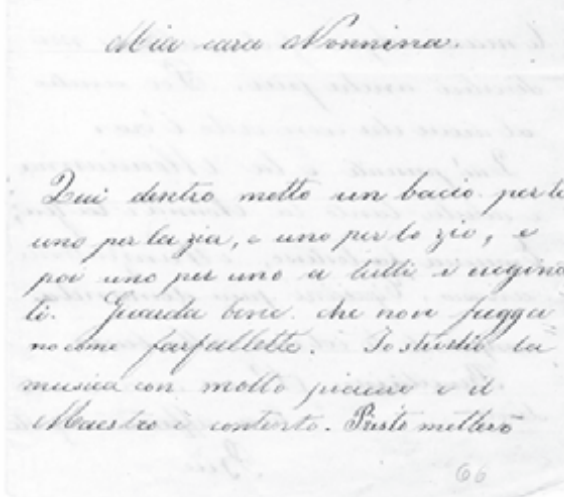 Mia cara Nonnina.
Qui dentro metto un bacco per te
uno per la zia, e uno per lo zio, e
poi uno per uno a tutti i cugina
ti. Guarda bene che non fugga
no come farfallette. Io studio la
musica con molto piacere e il
Maestro è contento. Presto metterò
66